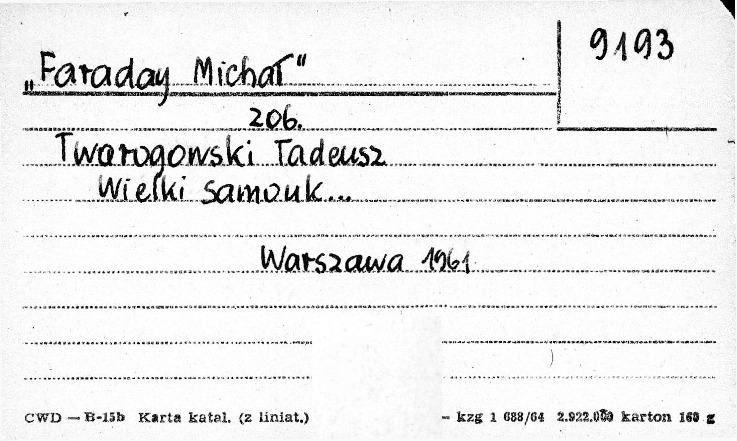 9193
„Faraday Michał"
206.
Twarogowski Tadeusz
Wielki samouk...
Warszawa 1961
CWD — B-15b Karta katal. (z liniat.) - kzg 1 688/64 2.922.000 karton 160 g